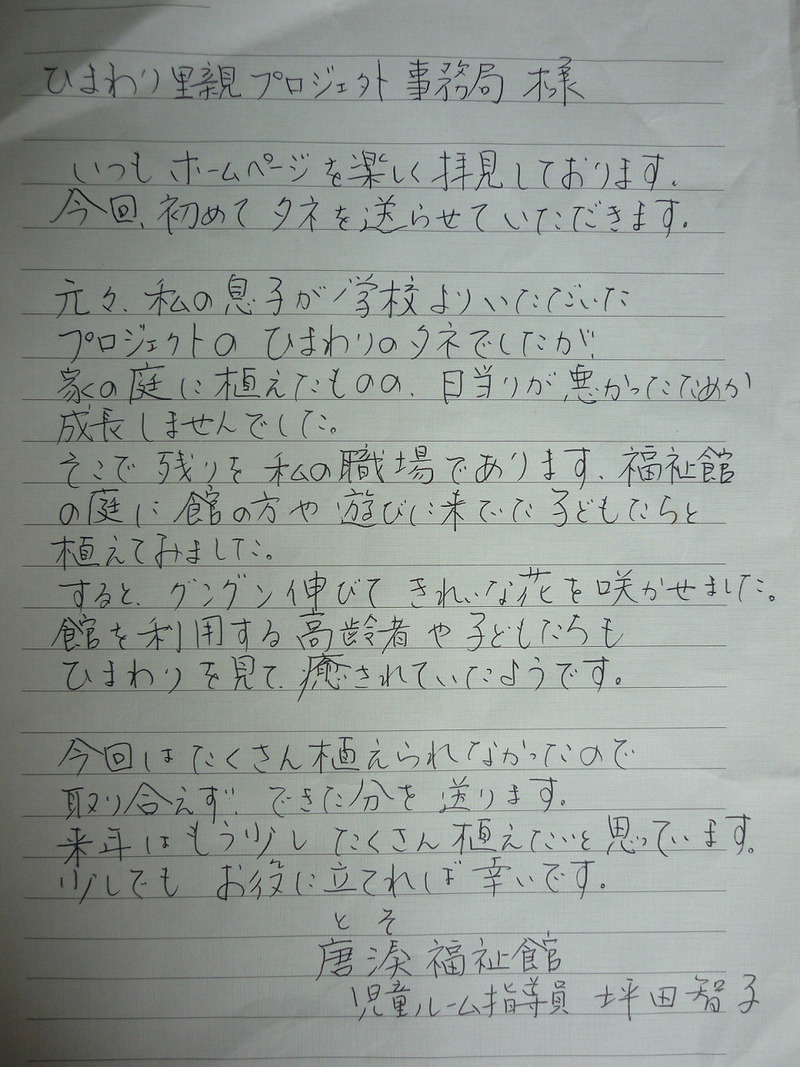 ひまわり里親プロジェクト事務局 様
いつもホームページを楽しく拝見しております。
今回、初めてタネを送らせていただきます。
元々、私の息子が学校よりいただいた
プロジェクトのひまわりのタネでしたが、
家の庭に植えたものの、日当りが悪かったためか
成長しませんでした。
そこで残りを私の職場であります、福祉館
の庭に館の方や遊びに来てた子どもたちと
植えてみました。
すると、グングン伸びてきれいな花を咲かせました。
館を利用する高齢者や子どもたちも
ひまわりを見て、癒されていたようです。
今回はたくさん植えられなかったので
取り合えず、できた分を送ります。
来年はもう少したくさん植えたいと思っています。
少しでもお役に立てれば幸いです。
とそ
唐湊福祉館
児童ルーム指導員 坪田智子